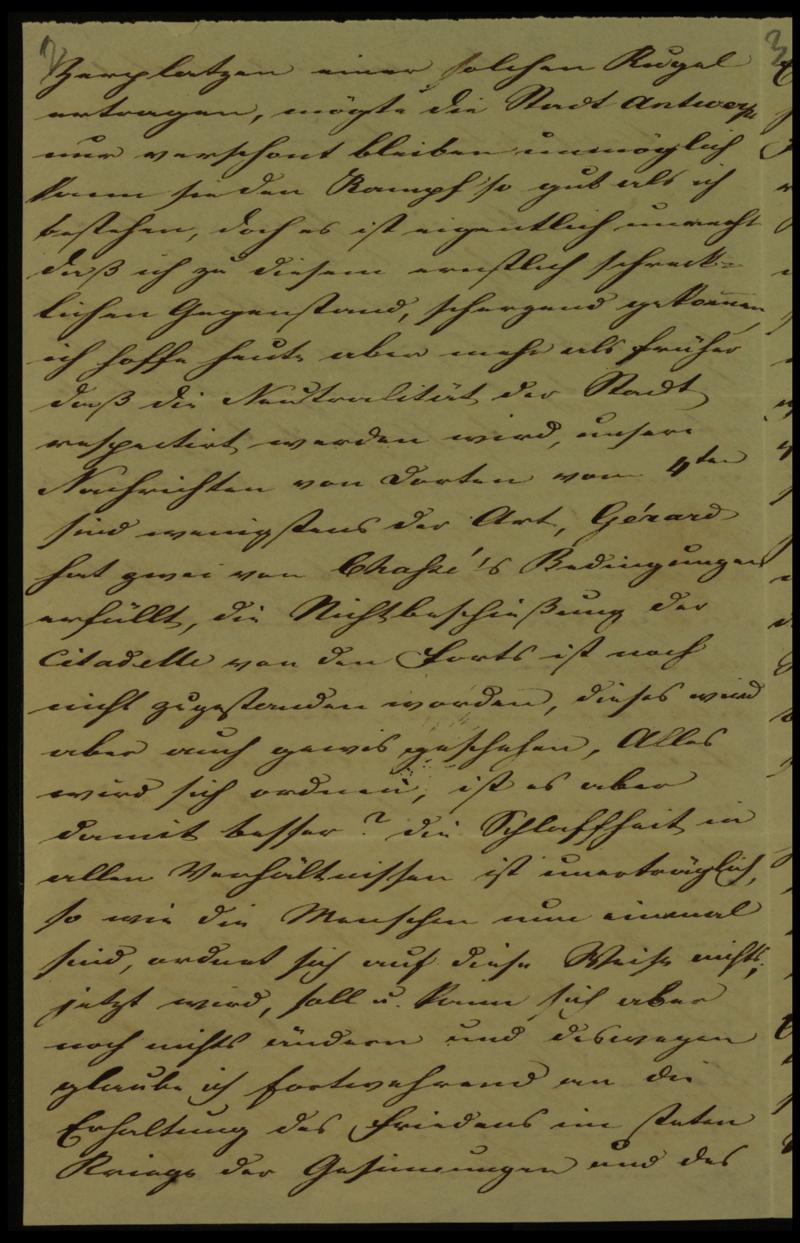 2
Zerplatzen einer solchen Kugel
ertragen, mögte die Stadt Antwerp
nur verschont bleiben unmöglich
kann sie den Kampf so gut als ich
bestehen, doch es ist eigentlich unrecht
daß ich zu diesem ernstlich schreck=
lichen Gegenstand, scherzend gekommen
ich hoffe heute aber mehr als früher
daß die Neutralität der Stadt
respectirt werden wird, unsere
Nachrichten von dorten vom 4ten
sind wenigstens der Art, Gérard
hat zwei von Chassé's Bedingungen
erfüllt, die Nichtbeschießung der
Citadelle von den Forts ist noch
nicht zugestanden worden, dieses wird
aber auch gewis geschehen, Alles
wird sich ordnen, ist es aber
damit besser? die Schlaffheit in
allen Verhältnissen ist unerträglich,
so wie die Menschen nun einmal
sind, ordnet sich auf diese Weise nichts,
jetzt wird, soll u. kann sich aber
noch nichts ändern und deswegen
glaube ich fortwehrend an die
Erhaltung des Friedens im steten
Kriege der Gesinnungen und des
3